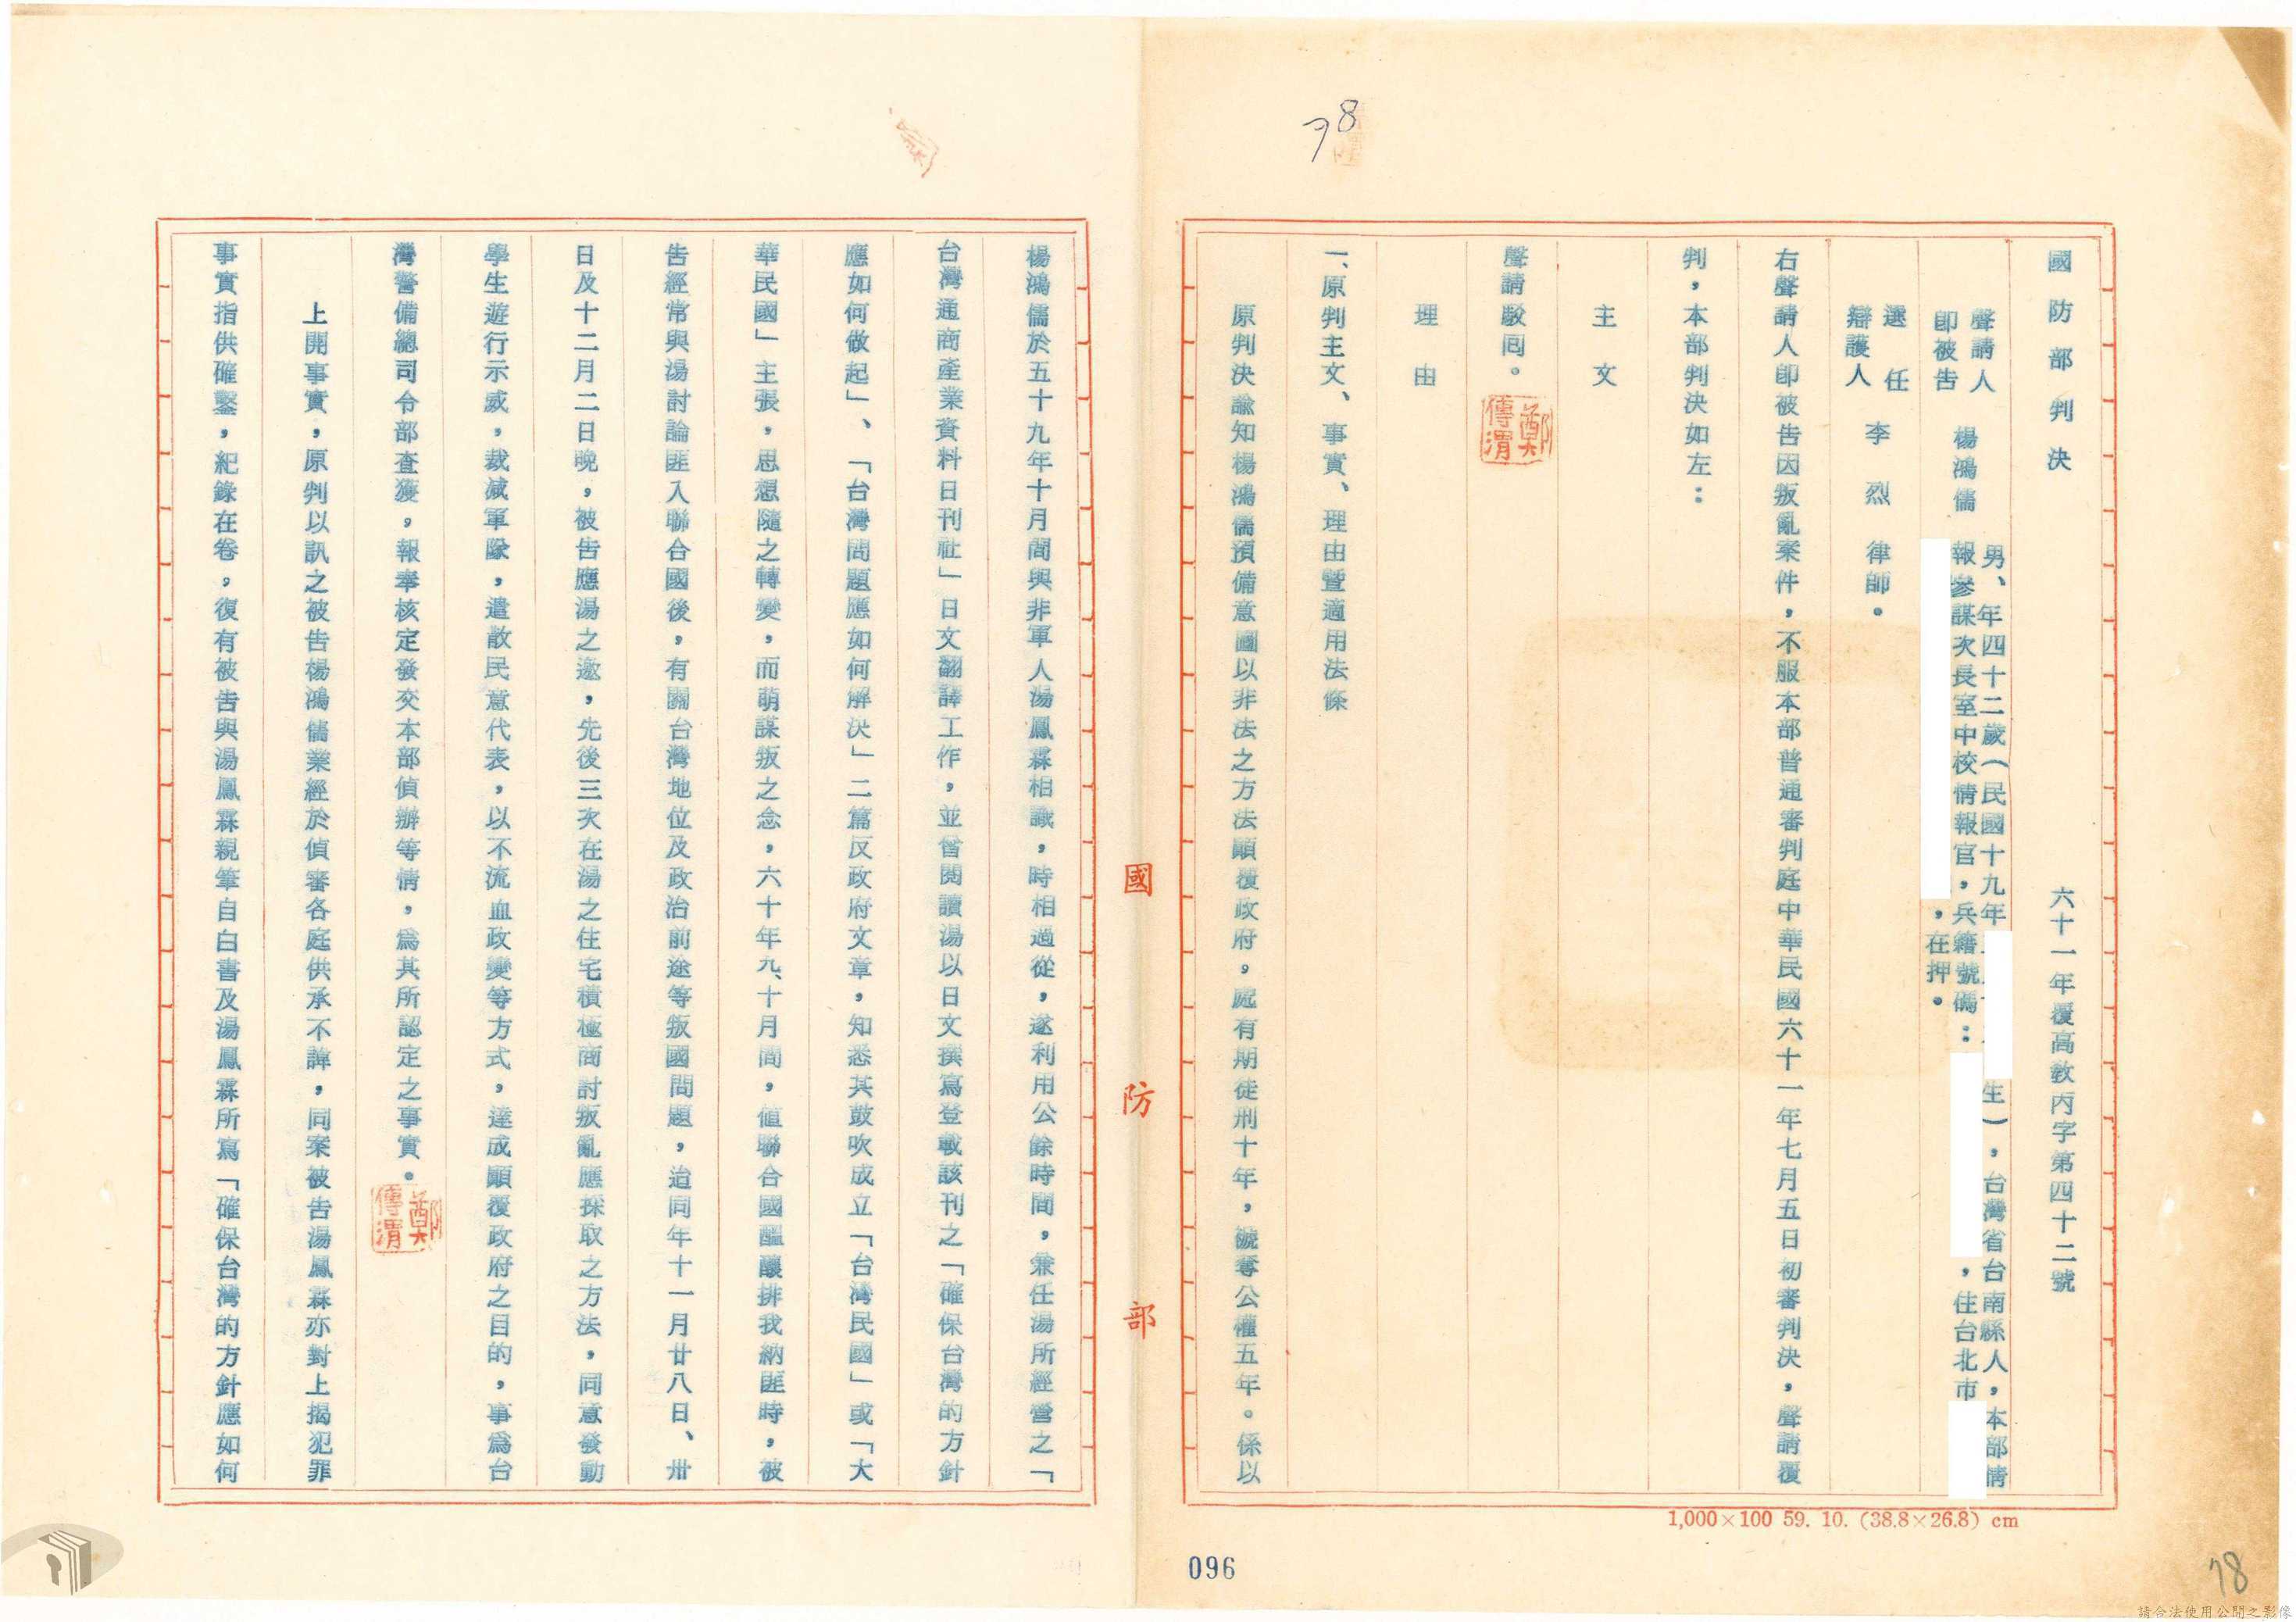 78
國防部判決　六十一年覆高教丙字第四十二號
聲請人
即被告　楊鴻儒　男、年四十二歲（民國十九年　生），台灣省台南縣人，本部情
報參謀次長室中校情報官，兵籍號碼：　，住台北市
，在押。
選任
辯護人　李烈律師。
右聲請人卽被告因叛亂案件，不服本部普通審判庭中華民國六十一年七月五日初審判決，聲請覆
判，本部判決如左：
主文
聲請駁回。
鄭傳渭
理由
一、原判主文、事實、理由暨適用法條
原判決諭知楊鴻儒預備意圖以非法之方法顛覆政府，處有期徒刑十年，褫奪公權五年。係以
國防部
楊鴻儒於五十九年十月間與非軍人湯鳳霖相識，時相過從，遂利用公餘時間，兼任湯所經營之「
台灣通商產業資料日刊社」日文翻譯工作，並曾閱讀湯以日文撰寫登載該刊之「確保台灣的方針
應如何做起」、「台灣問題應如何解決」二篇反政府文章，知悉其鼓吹成立「台灣民國」或「大
華民國」主張，思想隨之轉變，而萌謀叛之念，六十年九、十月間，值聯合國醞釀排我納匪時，被
告經常與湯討論匪入聯合國後，有關台灣地位及政治前途等叛國問題，迨同年十一月廿八日、卅
日及十二月二日晚，被告應湯之邀，先後三次在湯之住宅積極商討叛亂應採取之方法，同意發動
學生遊行示威，裁減軍隊，遣散民意代表，以不流血政變等方式，達成顛覆政府之目的，事爲台
灣警備總司令部查獲，報奉核定發交本部偵辦等情，爲其所認定之事實。
鄭傳渭
上開事實，原判以訊之被告楊鴻儒業經於偵審各庭供承不諱，同案被告湯鳳霖亦對上揭犯罪
事實指供確鑿，紀錄在卷，復有被告與湯鳳霖親筆自白書及湯鳳霖所寫「確保台灣的方針應如何
1,000×100 59. 10. (38.8×26.8) cm
096
78
請合法使用公開之影像